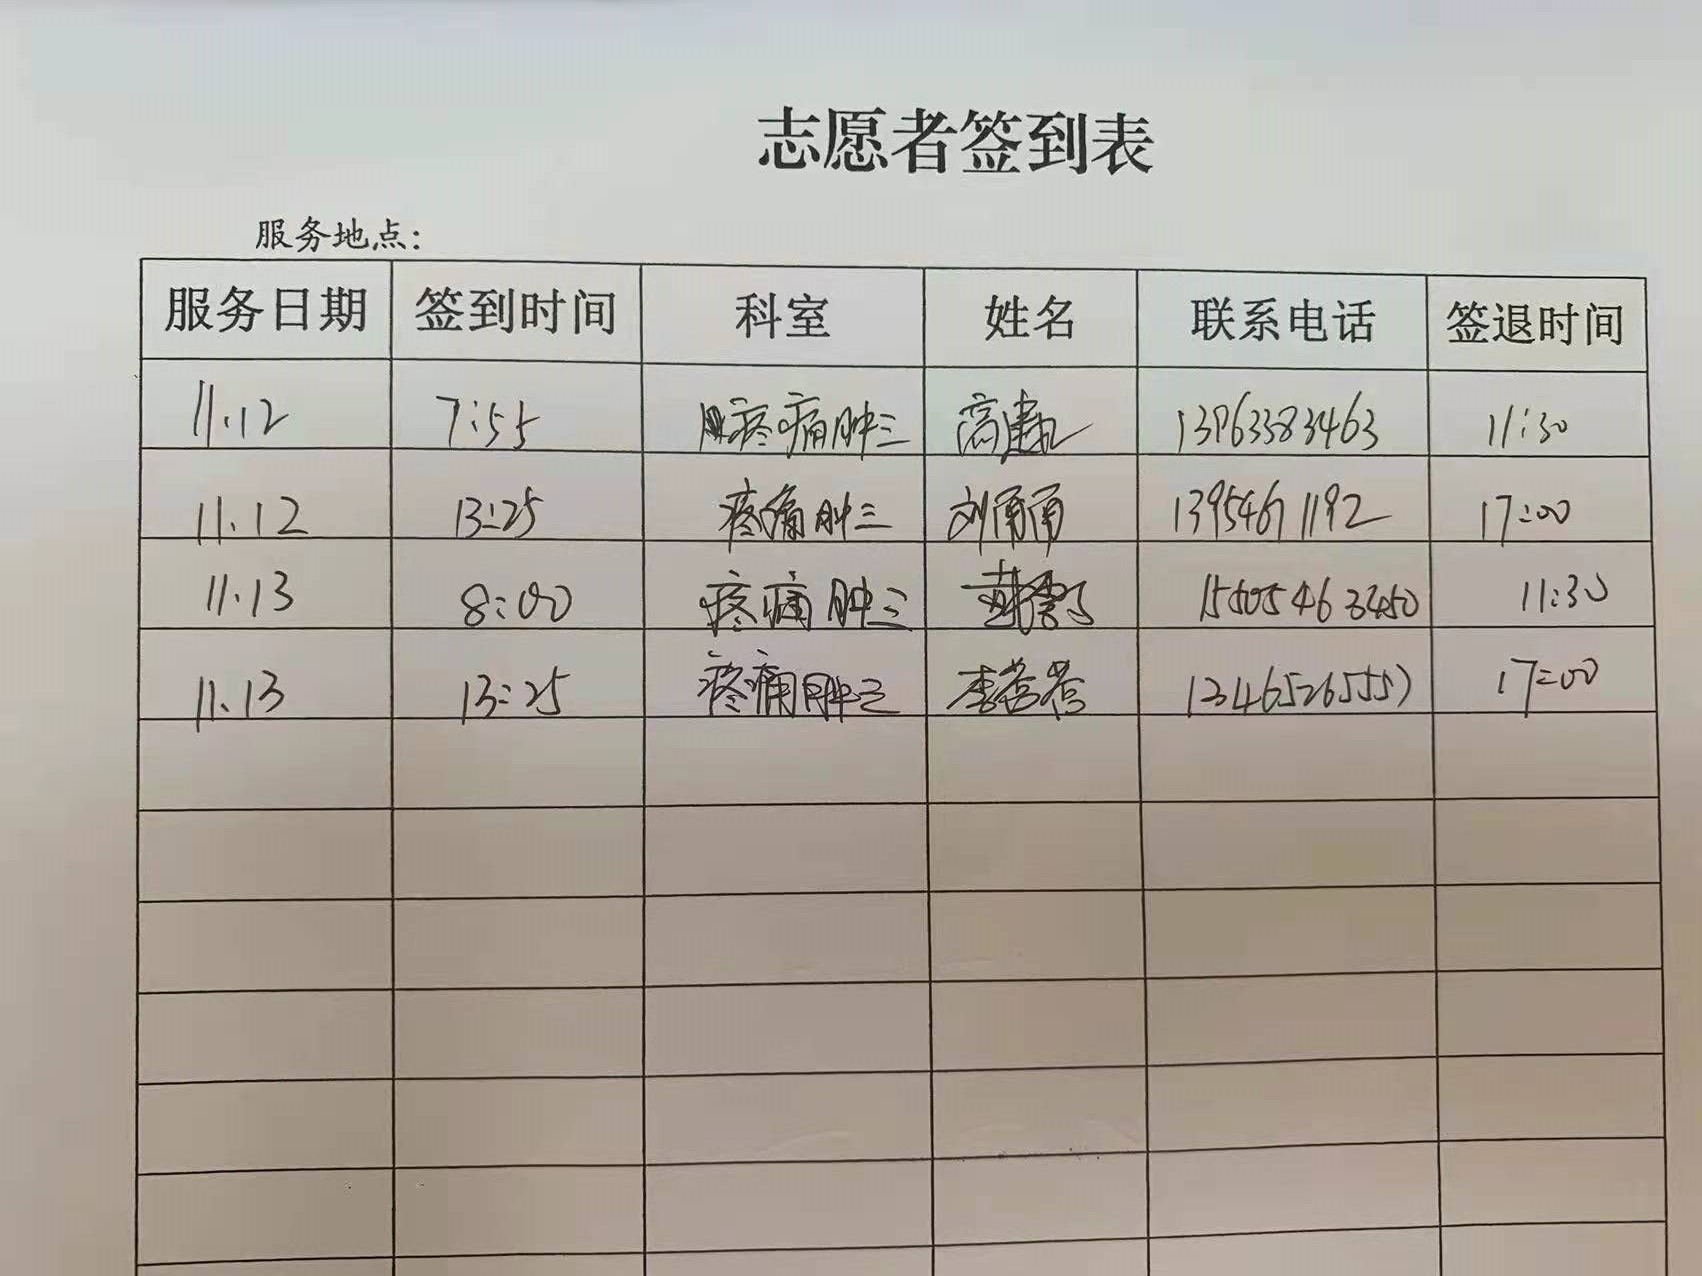 志愿者签到表
服务地点：
服务日期 签到时间 科室 姓名 联系电话 签退时间
11.12 7:55 疼痛肿三 高建 13963383463 11:30
11.12 13:25 疼痛肿三 刘雨雨 13954671192 17:00
11.13 8:00 疼痛肿三 15605463450 11:30
11.13 13:25 疼痛肿三 李苍苍 17:00